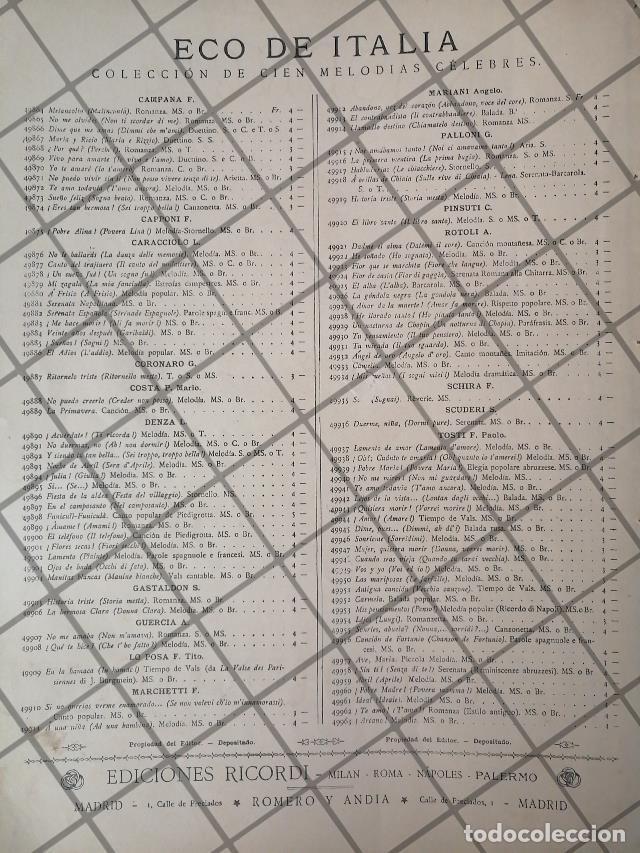 ECO DE ITALIA
COLECCIÓN DE CIEN MELODIAS CÉLEBRES.
CAMPANA F.
49864 Melancolía (Malinconia). Romanza. MS. o Br. Fr. 4 —
49865 No me olvides (Non ti scordar di me). Romanza. MS. o Br. 4 —
49866 Dime que me amas (Dimmi che m'ami). Duettino. S. o C. e T. o S
49867 María y Rizio (Maria e Rizzio). Duettino. S. S.
49868 ¿Por qué? (Perchè). Romanza. MS. o T
49869 Vivo para amarte (Io vivo e t'amo). Duettino. S. e C. o B.
49870 Yo te amaré (Io t'amerò). Romanza. C. o Br.
49871 No puedo vivir sin ti (Non posso vivere senza di te). Arietta. MS. o Br.
49872 Te amo todavía (T'amo ancora). Melodía. MS. o Br.
49873 Sueño feliz (Sogno beato). Romanza. MS. o Br.
49874 ¡Eres tan hermosa! (Sei troppo bella!) Canzonetta. MS. o Br.
CAPPONI F.
49875 ¡Pobre Alina! (Povera Lina!) Melodía-Stornello. MS. o Br.
CARACCIOLO L.
49876 No te bailards (La danza delle memorie). Melodía. MS. o T.
49877 Canto del trajinero (Il canto del mulattiere). MS. o Br.
49878 ¡Un sueño fué! (Un sogno fu!) Melodía. MS. o Br.
49879 Mi zagala (La mia fanciulla). Estrofas campestres. MS. o Br.
49880 Á Frisia (A Frisio). Melodía popular. MS. o Br.
49881 Serenata Napolitana. MS. o Br.
49882 Serenata Española (Sérénade Espagnole). Parole spagn. e franc. MS. o B.
49883 ¡Me hace morir! (Mi fa morir!) MS. o Br.
49884 Veinte años después (Garibaldi). MS. o Br.
49885 ¡Sueños! (Sogni!) MS. o Br.
49886 El Adiós (L'addio). Melodía popular. MS. o Br.
CORONARO G.
49887 Ritornelo triste (Ritornello mesto). T. o S. o MS. 3 —
COSTA P. Mario.
49888 No puedo creerlo (Creder non posso). Melodía. MS. o Br.
49889 La Primavera. Canción. MS. o Br.
DENZA L.
49890 ¡Acuerdate! (Ti ricorda!) Melodía. MS. o T.
49891 No duermas, no (Ah! non dormir!) Melodía. MS. o C. o Br.
49892 Y siendo tú tan bella... (Sei troppo, troppo bella!) Melodía. S. o MS. o T.
49893 Noche de Abril (Sera d'Aprile). Melodía. MS. o Br.
49894 ¡Julia! (Giulia!) Melodía. MS. o Br.
49895 Si... (Se...) Melodía. MS. o Br.
49896 Fiesta de la aldea (Festa del villaggio). Stornello. MS.
49897 En el camposanto (Nel camposanto). MS. o Br.
49898 Funiculì-Funiculà. Canto popular de Piedigrotta. MS. o Br.
49899 ¡Ámame! (Amami!) Romanza. MS. o Br.
49900 El teléfono (Il telefono). Canción de Piedigrotta. MS. o Br.
49901 ¡Flores secas! (Fiori secchi!) Melodía. MS. o Br.
49902 Lamento (Plainte). Melodía. Parole spagnuole e francesi. MS. o Br.
49903 Ojos de hada (Occhi di fata). Melodía. MS. o Br.
49904 Manitas blancas (Manine bianche). Vals cantable. MS. o Br.
GASTALDON S.
49905 Historia triste (Storia mesta). Romanza. MS. o Br.
49906 La hermosa Clara (Donna Clara). Melodía. MS. o Br.
GUERCIA A.
49907 No me amaba (Non m'amava). Romanza. S. o MS.
49908 ¡Qué te hice! (Che t'ho fatto!) Melodía. MS. o Br.
LO POSA F. Tito.
49909 En la hamaca (In hamac!) Tiempo de Vals (da La Valse des Pari-
siennes di J. Burgmein). MS. o Br.
MARCHETTI F.
49910 Si no queríos verme enamorado... (Se non volevi ch'io m'innamorassi).
Canto popular. MS. o Br.
49911 Á una niña (Ad una bambina). MS. o Br.
Propiedad del Editor. — Depositado.
MARIANI Angelo.
49912 Abandono, voz del corazón (Abbandono, voce del core). Romanza. S. Fr
49913 El contrabandista (Il contrabbandiere). Balada. B.
49914 Llamallo destino (Chiamatelo destino). Romanza. MS.
PALLONI G.
49915 ¡Nos amábamos tanto! (Noi ci amavamo tanto!) Aria. S.
49916 La primera mentira (La prima bugia). Romanza. S. o MS.
49917 Habladurías (Le chiacchiere). Stornello. S.
49918 Á orillas de Chiaia (Sulle rive di Chiaia). Serenata-Barcarola.
S. o T.
49919 Historia triste (Storia mesta). Melodía. MS. o Br.
PINSUTI C.
49920 El libro santo (Il libro santo). Melodía. S. o MS. o T.
ROTOLI A.
49921 Dadme el alma (Datemi il core). Canción montañesa. MS. o C. o Br.
49922 He soñado (Ho sognato). Melodía. MS. o Br.
49923 Flor que se marchita (Fiore che langue). Melodía. MS. o Br.
49924 Flor de casia (Fior di gaggia). Serenata Romana alla Chitarra. MS. o Br.
49925 El alba (L'alba). Barcarola. MS. o Br.
49926 La góndola negra (La gondola nera). Balada. MS. o Br.
49927 ¡Amor da la muerte! (Amor fa morire). Rispetto popolare. MS. o Br.
49928 He llorado tanto! (Ho pianto tanto!) Melodía. MS. o Br.
49929 Un nocturno de Chopin (Un notturno di Chopin). Paráfrasis. MS. o Br.
49930 Tu pensamiento (Il tuo pensiero). Melodía. MS. o Br.
49931 Tu mirada (Il tuo sguardo). MS. o Br.
49932 Ángel de oro (Angelo d'oro). Canto montañés. Imitación. MS. o Br.
49933 Camelia. Melodía. MS. o Br.
49934 ¡Mis sueños! (I sogni miei!) Melodía dramática. MS. o Br.
SCHIRA F.
49935 S. (Sognai). Rêverie. MS.
SCUDERI S.
49936 Duerme, niña, (Dormi pure). Serenata. MS. o Br.
TOSTI F. Paolo.
49937 Lamento de amor (Lamento d'amore). MS. o Br.
49938 ¡Oh!; Cuánto te amaría! (Oh! quanto io t'amerei!) Melodía. MS. o Br.
49939 ¡Pobre María! (Povera Maria!) Elegía popolare abruzzese. MS. o Br.
49940 ¡No me mires! (Non mi guardar!) Melodía. MS.
49941 Te amo todavía (T'amo ancora). Melodía. MS. o Br.
49942 Lejos de la vista... (Lontan dagli occhi...) Balada. MS. o Br.
49943 ¡Quisiera morir! (Vorrei morire!) Melodía. MS. o Br.
49944 ¡Amor! (Amore!) Tiempo de Vals. MS. o Br.
49945 Dime, bien... (Dimmi, ah dì!) Balada rusa. MS. o Br.
49946 Sonríeme (Sorridimi). Melodía. MS. o Br.
49947 Mujer, quisiera morir (Donna, vorrei morir). MS. o Br.
49948 Cuando seas vieja (Quando tu sarai vecchia). MS. o Br.
49949 Vos y yo (Voi ed io!) Melodía. MS. o Br.
49950 Las mariposas (Le farfalle). Melodía. MS. o Br.
49951 Antigua canción (Vecchia canzone). Tiempo de Vals. MS. o Br.
49952 Carmela. Balada popular. MS. o Br.
49953 Mis pensamientos (Penso!) Melodía popular (Ricordo di Napoli). MS. o Br.
49954 Léjos (Lungi). Romanzetta. MS. o Br.
49955 Sonríes, abuela? (Nonna,... sorridi?...) Canzonetta. MS. o Br.
49956 Canción de Fortunio (Chanson de Fortunio). Parole spagnuole e fran-
cesi. MS. o Br.
49957 Ave, María. Piccola Melodía. MS. o Br.
49958 Sin ti! (Senza di te!) Serenata (Reminiscenze abruzzesi). MS. o Br.
49959 Abril (Aprile). Melodía. MS. o Br.
49960 ¡Pobre Madre! (Povera Mamma!) Melodía. MS. o Br.
49961 Ideal (Ideale). Melodía. MS. o Br.
49962 ¡Te amo! (T'amo!) Romanza (Estilo antiguo). MS. o Br.
49963 ¡Arcano! Melodía. MS. o Br.
Propiedad del Editor. — Depositado.
EDICIONES RICORDI — MILAN - ROMA - NÁPOLES - PALERMO
MADRID — 1, Calle de Preciados ★ ROMERO Y ANDIA ★ Calle de Preciados, 1 — MADRID
todocoleccion